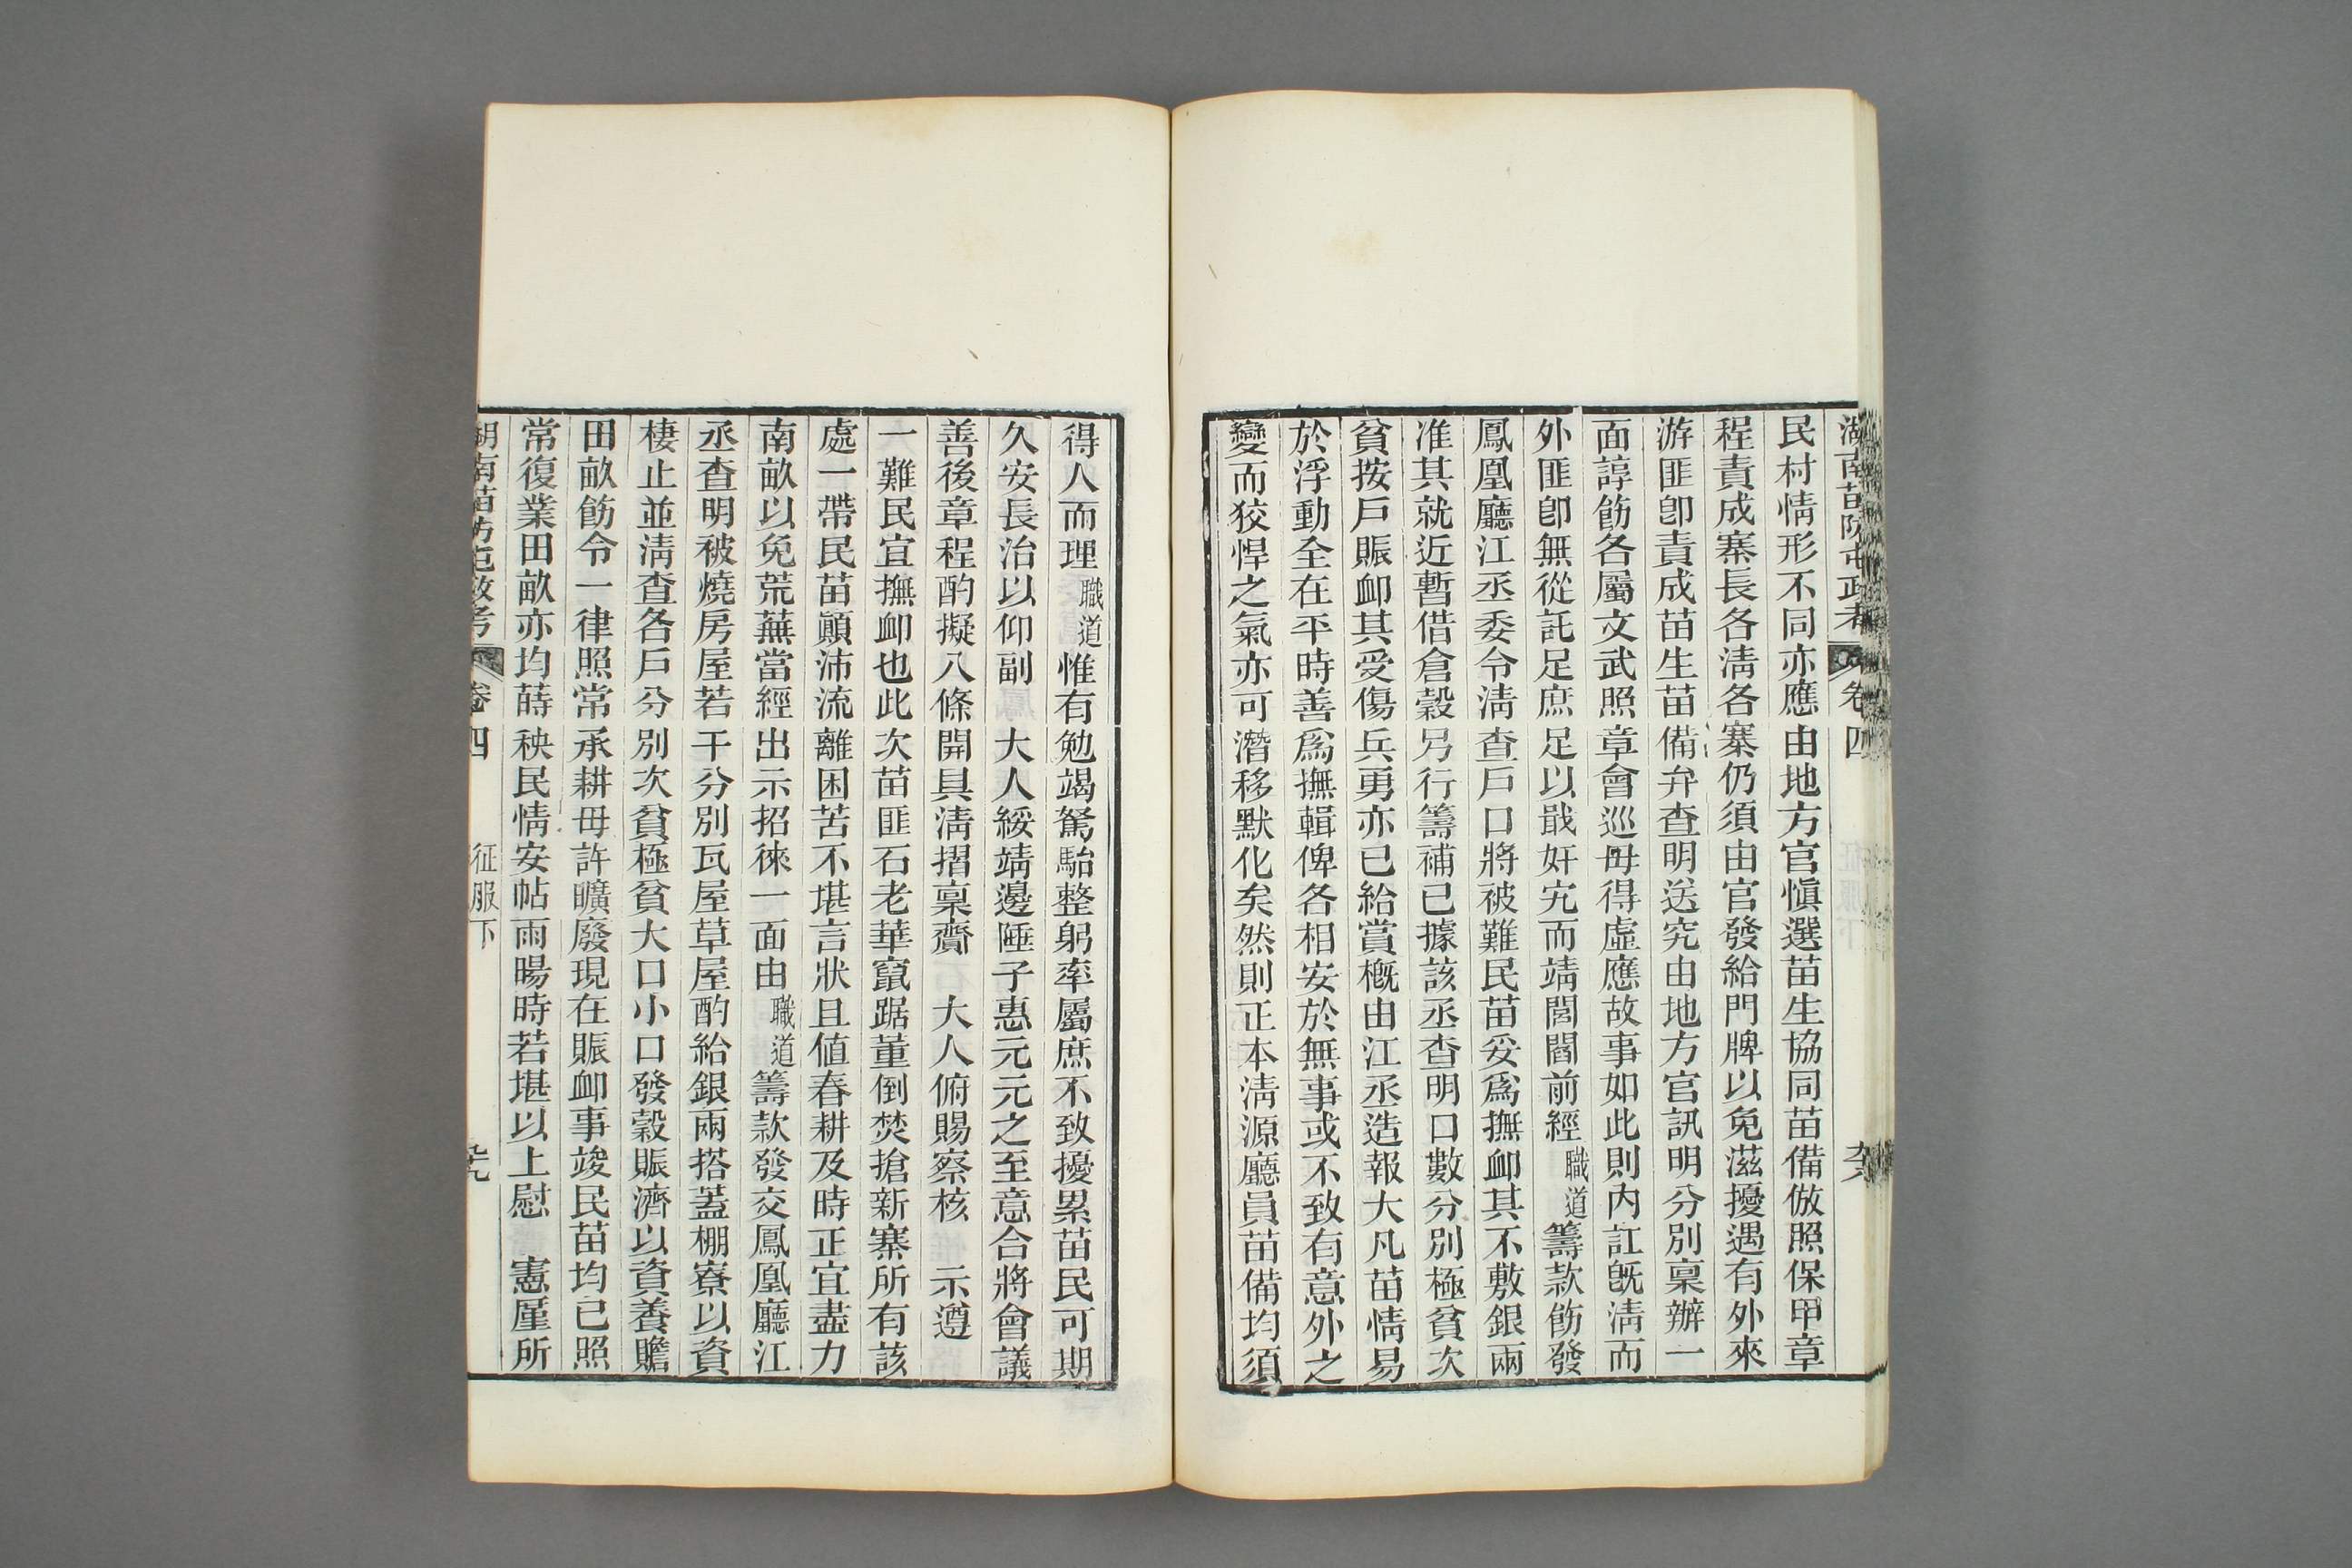 湖南苗防屯政考 卷四
民村情形不同亦應由地方官愼選苗生協同苗備倣照保甲章
程責成寨長各淸各寨仍須由官發給門牌以免滋擾遇有外來
游匪卽責成苗生苗備弁查明送究由地方官訊明分別稟辦一
面諄飭各屬文武照章會巡毋得虛應故事如此則内訌旣淸而
外匪卽無從託足庶足以戢奸宄而靖閭閻前經職道籌款飭發
鳳凰廳江丞委令淸查戶口將被難民苗妥爲撫衈其不敷銀兩
准其就近暫借倉穀另行籌補已據該丞查明口數分別極貧次
貧按戶賑衈其受傷兵勇亦已給賞槪由江丞造報大凡苗情易
於浮動全在平時善爲撫輯俾各相安於無事或不致有意外之
變而狡悍之氣亦可潛移默化矣然則正本淸源廳員苗備均須
得人而理職道惟有勉竭駑駘整躬率屬庶不致擾累苗民可期
久安長治以仰副 大人綏靖邊陲子惠元元之至意合將會議
善後章程酌擬八條開具淸摺稟齎 大人俯賜察核 示遵
一難民宜撫衈也此次苗匪石老華竄踞董倒焚搶新寨所有該
處一帶民苗顚沛流離困苦不堪言狀且値春耕及時正宜盡力
南畝以免荒蕪當經出示招徠一面由職道籌款發交鳳凰廳江
丞查明被燒房屋若干分別瓦屋草屋酌給銀兩搭蓋棚寮以資
棲止並淸查各戶分別次貧極貧大口小口發穀賑濟以資養贍
田畝飭令一律照常承耕毋許曠廢現在賑衈事竣民苗均已照
常復業田畝亦均蒔秧民情安帖雨暘時若堪以上慰 憲廑所
湖南苗防屯政考 卷四 征服下